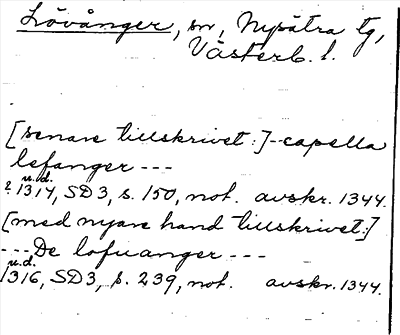 Lövånger, sn, Nysätra tg,
Västerb. l.
[senare tillskrivet:] - capella
lefanger - - -
u.d.
? 1314, SD3, s. 150, not. avskr. 1344.
[med nyare hand tillskrivet:]
- - - De lofuanger - - -
u.d.
1316, SD3, s. 239, not. avskr. 1344.